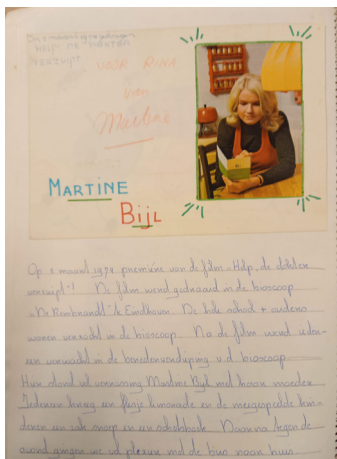 HELP DE DOKTER
VERZUIPT
VOOR RINA
van
Martine
MARTINE
BIJL
Op 2 maart 1974 première van de film "Help, de dokter
verzuipt"! De film werd gedraaid in de bioscoop
"De Rembrandt" te Eindhoven. De hele school + ouders
waren verwacht in de bioscoop. Na de film werd ieder-
een verwacht in de benedenverdieping v.d. bioscoop
Hier stond als verrassing Martine Bijl met haar moeder
Iedereen kreeg en flesje limonade en de meegespeelde kin-
deren een zak snoep en een schetsboek. Daarna tegen de
avond gingen we vol plezier met de bus naar huis